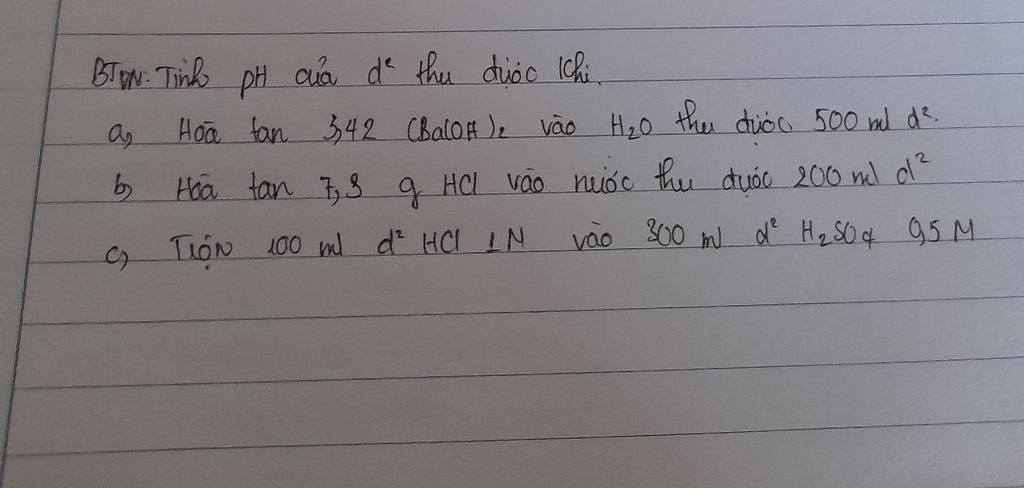 BTVN: Tính pH của d² thu được khi.
a, Hoà tan 3,42 (Ba(OH)₂ vào H₂O thu được 500 ml d².
b, Hoà tan 7,3 g HCl vào nước thu được 200 ml d²
c, Trộn 100 ml d² HCl 1M vào 300 ml d² H₂SO₄ 0,5 M